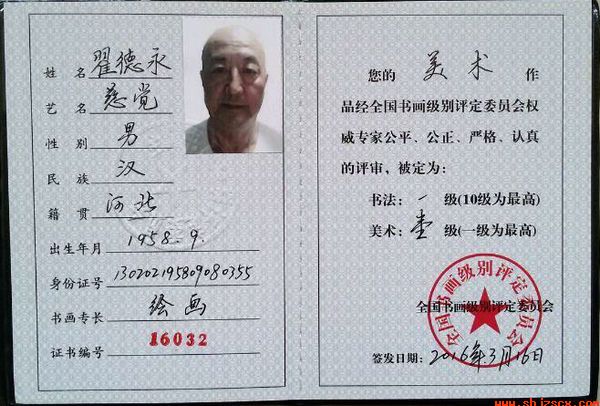 姓名 翟德永
艺名 慈觉
性别 男
民族 汉
籍贯 河北
出生年月 1958.9.
身份证号 130202195809080355
书画专长 绘画
证书编号 16032
您的 美术 作
品经全国书画级别评定委员会权
威专家公平、公正、严格、认真
的评审，被定为：
书法： 级(10级为最高)
美术：壹 级(一级为最高)
全国书画级别评定委员会
全国书画级别评定委员会
签发日期：2016年3月16日
www.shjzscx.com